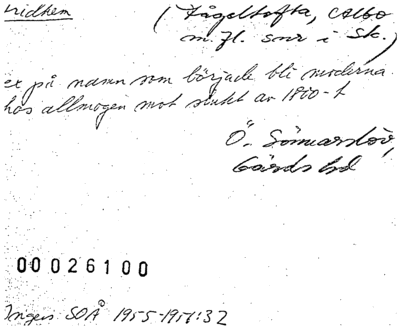 ridhem
(Fågeltofta, Albo
m. fl. snr i Sk.)
ex på namn som började bli moderna
hos allmogen mot slutet av 1800-t
Ö. Sönnarslöv,
Gärds hd
00026100
Ingers SOÅ 1955-1956:32